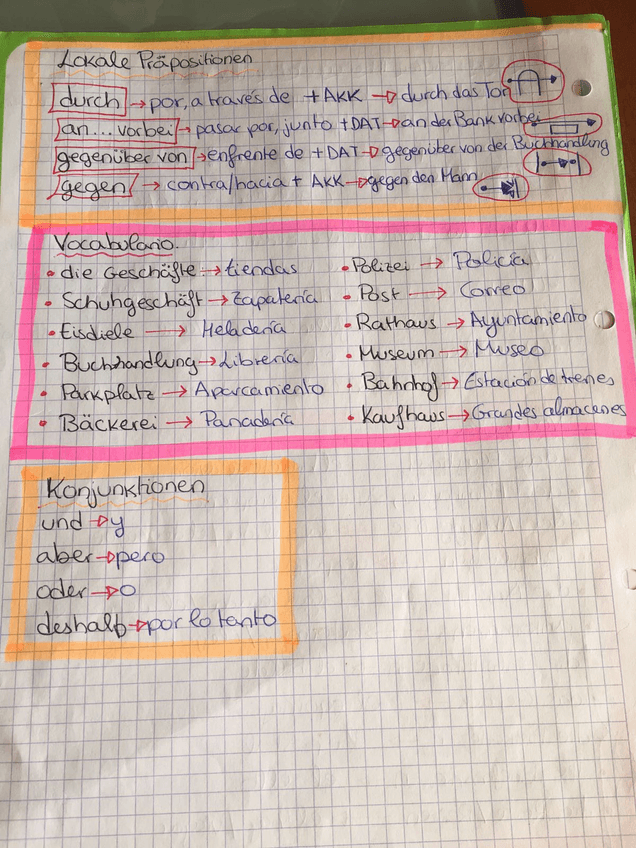 Lokale Präpositionen
durch → por, a través de + AKK → durch das Tor
an...vorbei → pasar por, junto + DAT → an der Bank vorbei
gegenüber von → enfrente de + DAT → gegenüber von der Buchhandlung
gegen → contra/hacia + AKK → gegen den Mann
Vocabulario.
• die Geschäfte → tiendas
• Schuhgeschäft → Zapatería
• Eisdiele → Heladería
• Buchhandlung → Librería
• Parkplatz → Aparcamiento
• Bäckerei → Panadería
• Polizei → Policía
• Post → Correo
• Rathaus → Ayuntamiento
• Museum → Museo
• Bahnhof → Estación de trenes
• Kaufhaus → Grandes almacenes
Konjunktionen
und → y
aber → pero
oder → o
deshalb → por lo tanto